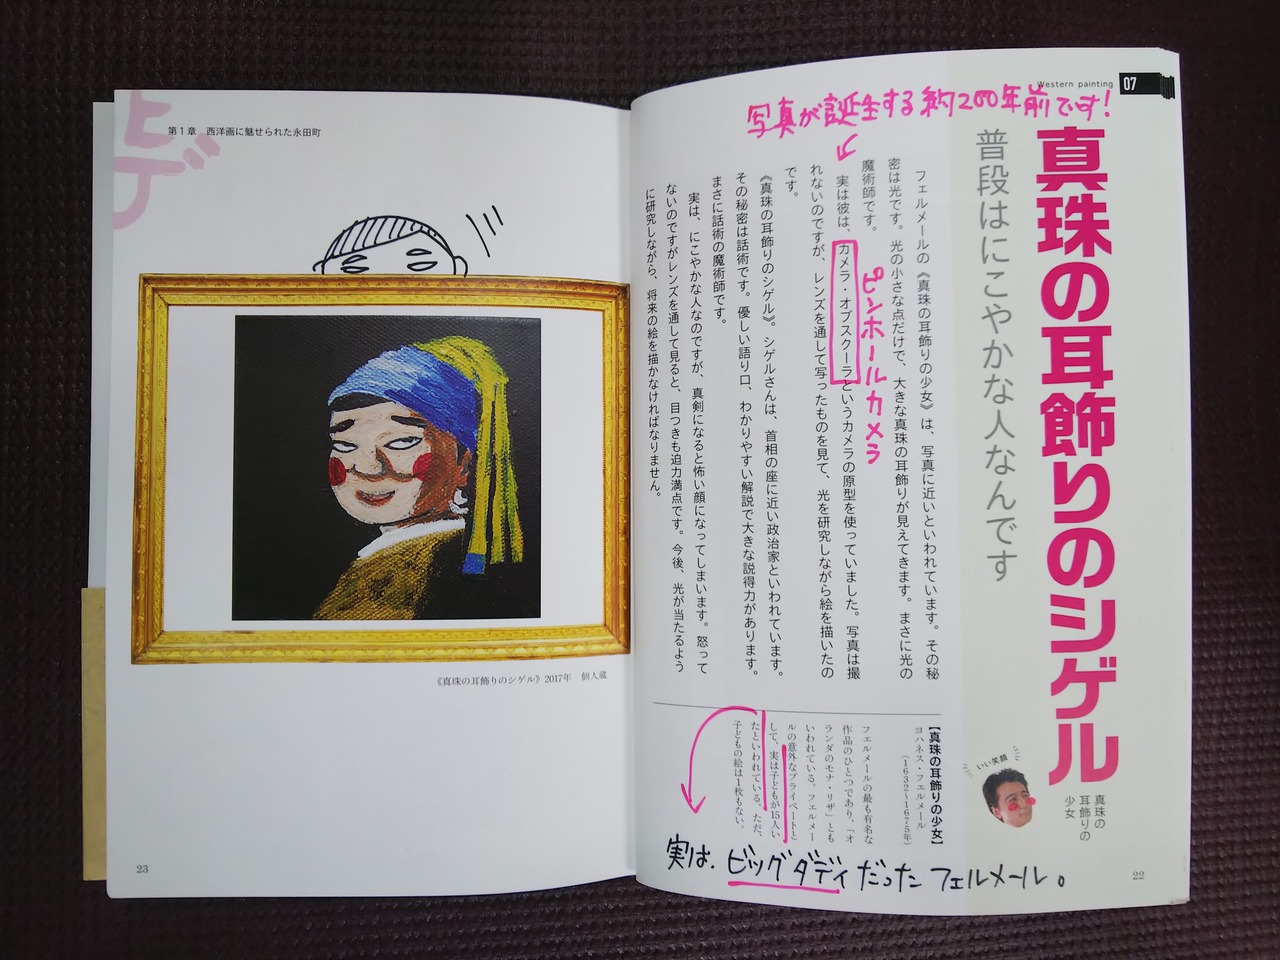 Western painting 07
写真が誕生する約200年前です!
真珠の耳飾りのシゲル
普段はにこやかな人なんです
フェルメールの《真珠の耳飾りの少女》は、写真に近いといわれています。その秘
密は光です。光の小さな点だけで、大きな真珠の耳飾りが見えてきます。まさに光の
魔術師です。
ピンホールカメラ
実は彼は、カメラ・オブスクーラというカメラの原型を使っていました。写真は撮
れないのですが、レンズを通して写ったものを見て、光を研究しながら絵を描いたの
です。
《真珠の耳飾りのシゲル》。シゲルさんは、首相の座に近い政治家といわれています。
その秘密は話術です。優しい語り口、わかりやすい解説で大きな説得力があります。
まさに話術の魔術師です。
実は、にこやかな人なのですが、真剣になると怖い顔になってしまいます。怒って
ないのですがレンズを通して見ると、目つきも迫力満点です。今後、光が当たるよう
に研究しながら、将来の絵を描かなければなりません。
いい笑顔
真珠の
耳飾りの
少女
【真珠の耳飾りの少女】
ヨハネス・フェルメール
(1632〜1675年)
フェルメールの最も有名な
作品のひとつであり、「オ
ランダのモナ・リザ」とも
いわれている。フェルメー
ルの意外なプライベートと
して、実は子どもが15人い
たといわれている。ただ、
子どもの絵は1枚もない。
実は、ビッグダディだったフェルメール。
22
ヒデ
第1章 西洋画に魅せられた永田町
《真珠の耳飾りのシゲル》2017年 個人蔵
23